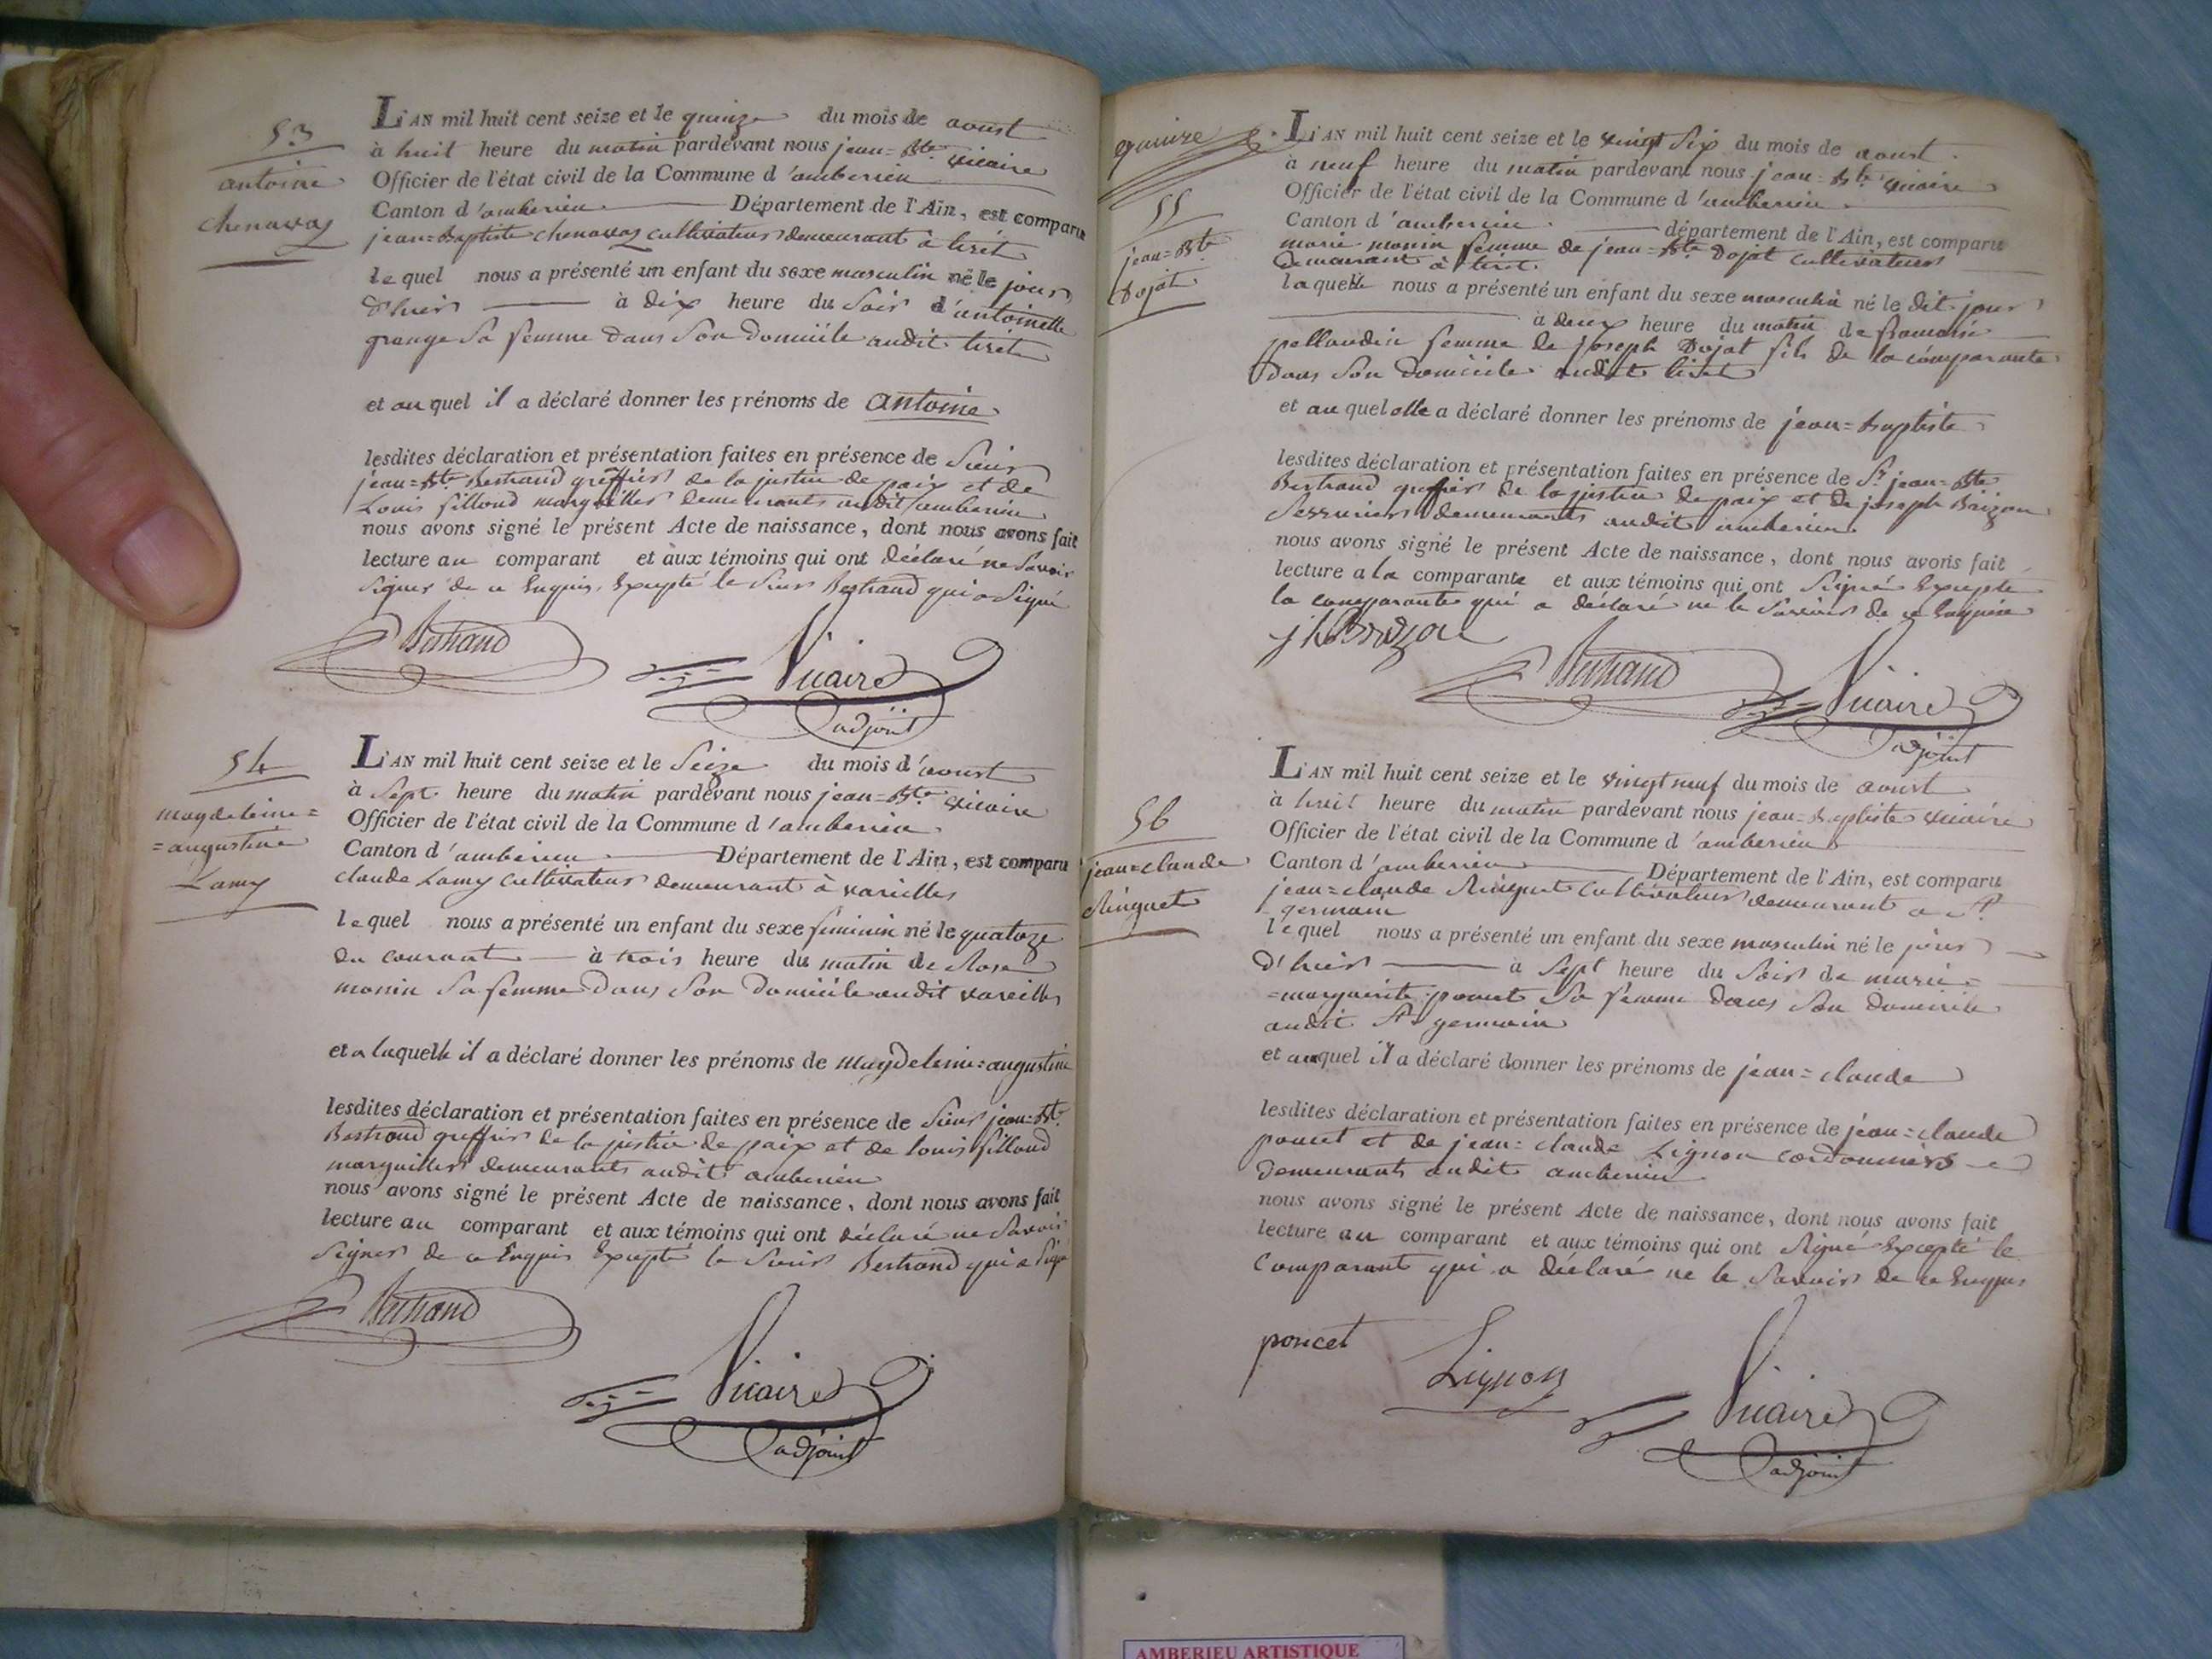 53
antoine
chenavaz
L'AN mil huit cent seize et le quinze du mois de aoust
à huit heure du matin pardevant nous jean=Bte vicaire
Officier de l'état civil de la Commune d'amberieu
Canton d'amberieu Département de l'Ain, est comparu
jean=Baptiste chenavaz cultivateur demeurant à tirét
lequel nous a présenté un enfant du sexe masculin né le jour
d'hier à dix heure du soir d'antoinette
grange sa femme dans son domicile audit tiret
et au quel il a déclaré donner les prénoms de antoine
lesdites déclaration et présentation faites en présence de sieur
jean=Bte Bertrand greffier de la justice de paix et de
Louis fillond marguillier demeurants audit amberieu
nous avons signé le présent Acte de naissance, dont nous avons fait
lecture au comparant et aux témoins qui ont déclaré ne savoir
signer de ce enquis, Excepté le sieur Bertrand qui a signé
Bertrand
Vicaire
adjoint
54
magdeleine=
=augustine
Lamy
L'AN mil huit cent seize et le seize du mois d'aoust
à sept heure du matin pardevant nous jean=Bte vicaire
Officier de l'état civil de la Commune d'amberieu
Canton d'amberieu Département de l'Ain, est comparu
claude Lamy cultivateur demeurant à vareilles
lequel nous a présenté un enfant du sexe féminin né le quatorze
du courant à trois heure du matin de Rose
monin sa femme dans son domicile audit vareilles
et a laquelle il a déclaré donner les prénoms de magdeleine=augustine
lesdites déclaration et présentation faites en présence de sieur jean=Bte
Bertrand greffier de la justice de paix et de louis fillond
marguillier demeurants audit amberieu
nous avons signé le présent Acte de naissance, dont nous avons fait
lecture au comparant et aux témoins qui ont déclaré ne savoir
signer de ce Enquis Excepté le sieur Bertrand qui a signé
Bertrand
Vicaire
adjoint
quinze
55
jean=Bte
Dojat
L'AN mil huit cent seize et le vingt six du mois de aoust
à neuf heure du matin pardevant nous jean=Bte vicaire
Officier de l'état civil de la Commune d'amberieu
Canton d'amberieu département de l'Ain, est comparu
marie monin femme de jean=Bte Dojat cultivateur
demeurant à tiret
laquelle nous a présenté un enfant du sexe masculin né le dit jour
à deux heure du matin de
pellaudin femme de joseph Dojat fils de la comparante
dans son domicile audit tiret
et au quel elle a déclaré donner les prénoms de jean=Baptiste
lesdites déclaration et présentation faites en présence de Sr jean=Bte
Bertrand greffier de la justice de paix et de joseph
serrurier demeurants audit amberieu
nous avons signé le présent Acte de naissance, dont nous avons fait
lecture a la comparante et aux témoins qui ont signé Excepté
la comparante qui a déclaré ne le savoir de ce Enquise
Bertrand
Vicaire
adjoint
56
jean=claude
Ringuet
L'AN mil huit cent seize et le vingt neuf du mois de aoust
à huit heure du matin pardevant nous jean=Baptiste vicaire
Officier de l'état civil de la Commune d'amberieu
Canton d'amberieu Département de l'Ain, est comparu
jean=claude Ringuet cultivateur demeurant a St
germain
lequel nous a présenté un enfant du sexe masculin né le jour
d'hier à sept heure du soir de marie=
=marguerite poncet sa femme dans son domicile
audit St germain
et auquel il a déclaré donner les prénoms de jean=claude
lesdites déclaration et présentation faites en présence de jean=claude
poncet et de jean=claude Lignon cordonniers
demeurants audit amberieu
nous avons signé le présent Acte de naissance, dont nous avons fait
lecture au comparant et aux témoins qui ont signé Excepté le
comparant qui a déclaré ne le savoir de ce Enquis
poncet
Lignon
Vicaire
adjoint
AMBERIEU ARTISTIQUE